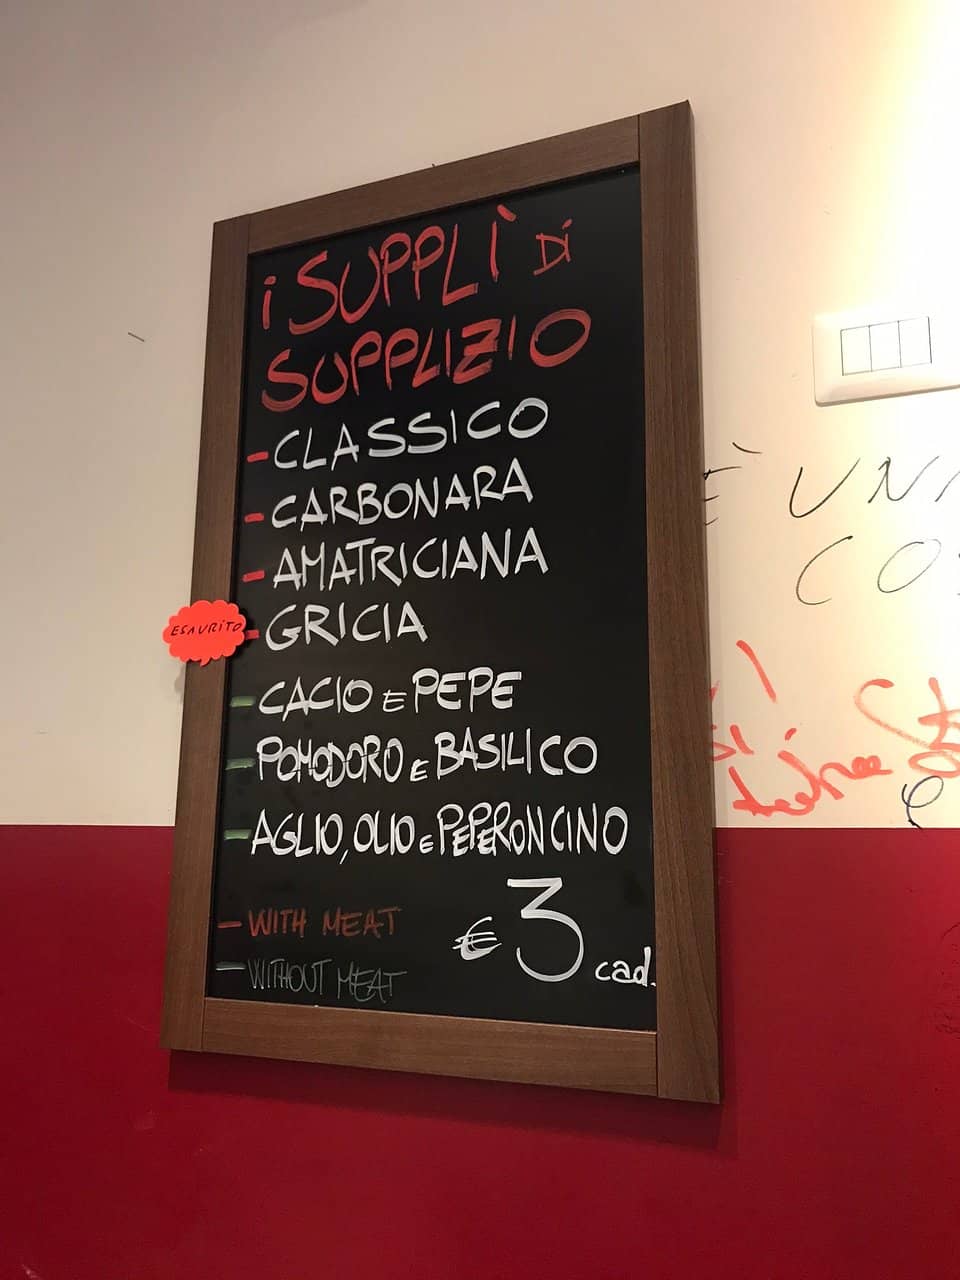 i SUPPLÌ Di
SUPPLIZIO
- CLASSICO
- CARBONARA
- AMATRICIANA
ESAURITO - GRICIA
- CACIO E PEPE
- POMODORO E BASILICO
- AGLIO, OLIO E PEPERONCINO
- WITH MEAT
- WITHOUT MEAT
€ 3 cad.
È UNA